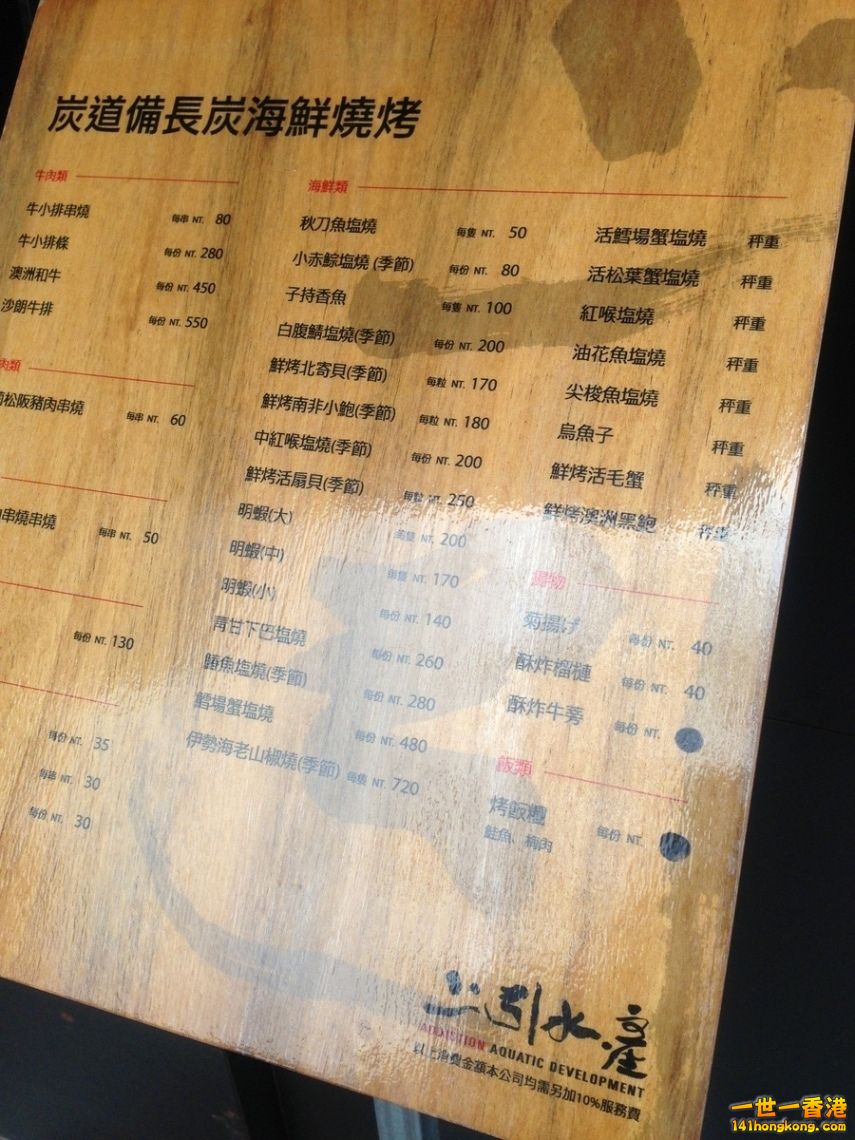 炭道備長炭海鮮燒烤
牛肉類
牛小排串燒 每串 NT. 80
牛小排條 每份 NT. 280
澳洲和牛 每份 NT. 450
沙朗牛排 每份 NT. 550
肉類
松阪豬肉串燒 每串 NT. 60
串燒串燒 每串 NT. 50
每份 NT. 130
每份 NT. 35
每串 NT. 30
每份 NT. 30
海鮮類
秋刀魚塩燒 每隻 NT. 50
小赤鯮塩燒 (季節) 每份 NT. 80
子持香魚 每隻 NT. 100
白腹鯖塩燒(季節) 每份 NT. 200
鮮烤北寄貝(季節) 每粒 NT. 170
鮮烤南非小鮑(季節) 每粒 NT. 180
中紅喉塩燒(季節) 每份 NT. 200
鮮烤活扇貝(季節) 每粒 NT. 250
明蝦(大) 每隻 NT. 200
明蝦(中) 每隻 NT. 170
明蝦(小) 每份 NT. 140
青甘下巴塩燒 每份 NT. 260
魚塩燒(季節) 每份 NT. 280
鱈場蟹塩燒 每份 NT. 480
伊勢海老山椒燒(季節) 每隻 NT. 720
活鱈場蟹塩燒 秤重
活松葉蟹塩燒 秤重
紅喉塩燒 秤重
油花魚塩燒 秤重
尖梭魚塩燒 秤重
烏魚子 秤重
鮮烤活毛蟹 秤重
鮮烤澳洲黑鮑 秤重
揚物
菊揚げ 每份 NT. 40
酥炸榴槤 每份 NT. 40
酥炸牛蒡 每份 NT.
飯類
烤飯糰 每份 NT.
鮭魚、梅肉
上引水產
ADDICTION AQUATIC DEVELOPMENT
以上消費金額本公司均需另加10%服務費
一世一香港
141hongkong.com